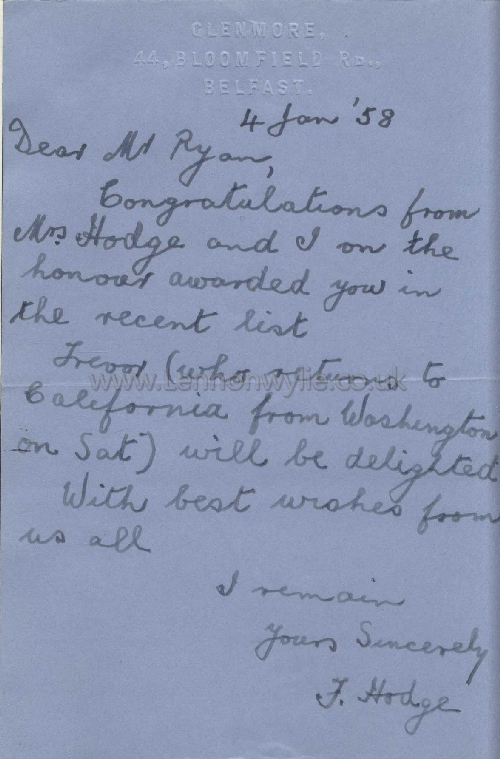 GLENMORE,
44, BLOOMFIELD RD.,
BELFAST.
4 Jan '58
Dear Mr Ryan,
Congratulations from
Mrs. Hodge and I on the
honour awarded you in
the recent list
Trevor (who returns to
www.Lennonwylie.co.uk
California from Washington
on Sat) will be delighted
With best wishes from
us all
I remain
Yours Sincerely
F. Hodge